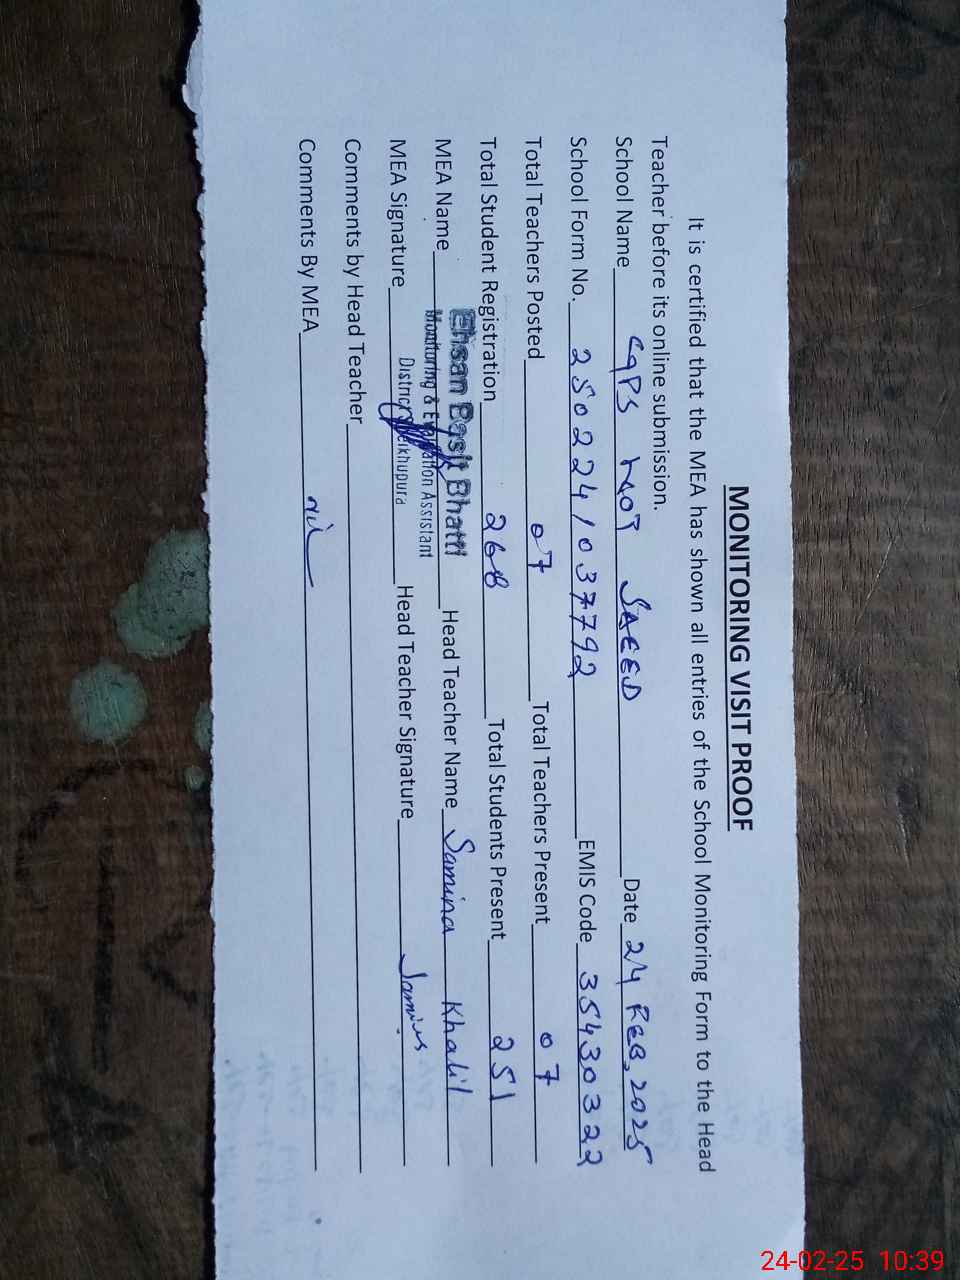 MONITORING VISIT PROOF
It is certified that the MEA has shown all entries of the School Monitoring Form to the Head
Teacher before its online submission.
School Name GGPS KOT SAEED Date 24 FEB, 2025
School Form No. 250224/037792 EMIS Code 35430322
Total Teachers Posted 07 Total Teachers Present 07
Total Student Registration 268 Total Students Present 251
MEA Name Ehsan Basit Bhatti Head Teacher Name Samina Khalil
Monitoring & Evaluation Assistant
MEA Signature District Sheikhupura Head Teacher Signature
Comments by Head Teacher
Comments By MEA nil
24-02-25 10:39